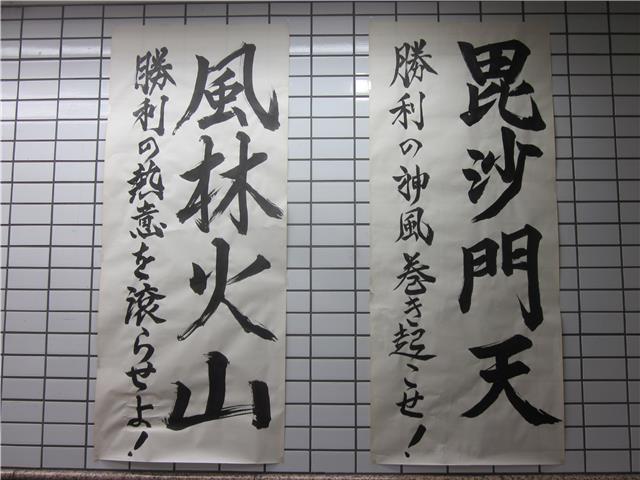 毘沙門天
勝利の神風巻き起こせ!
風林火山
勝利の熱意を滾らせよ!